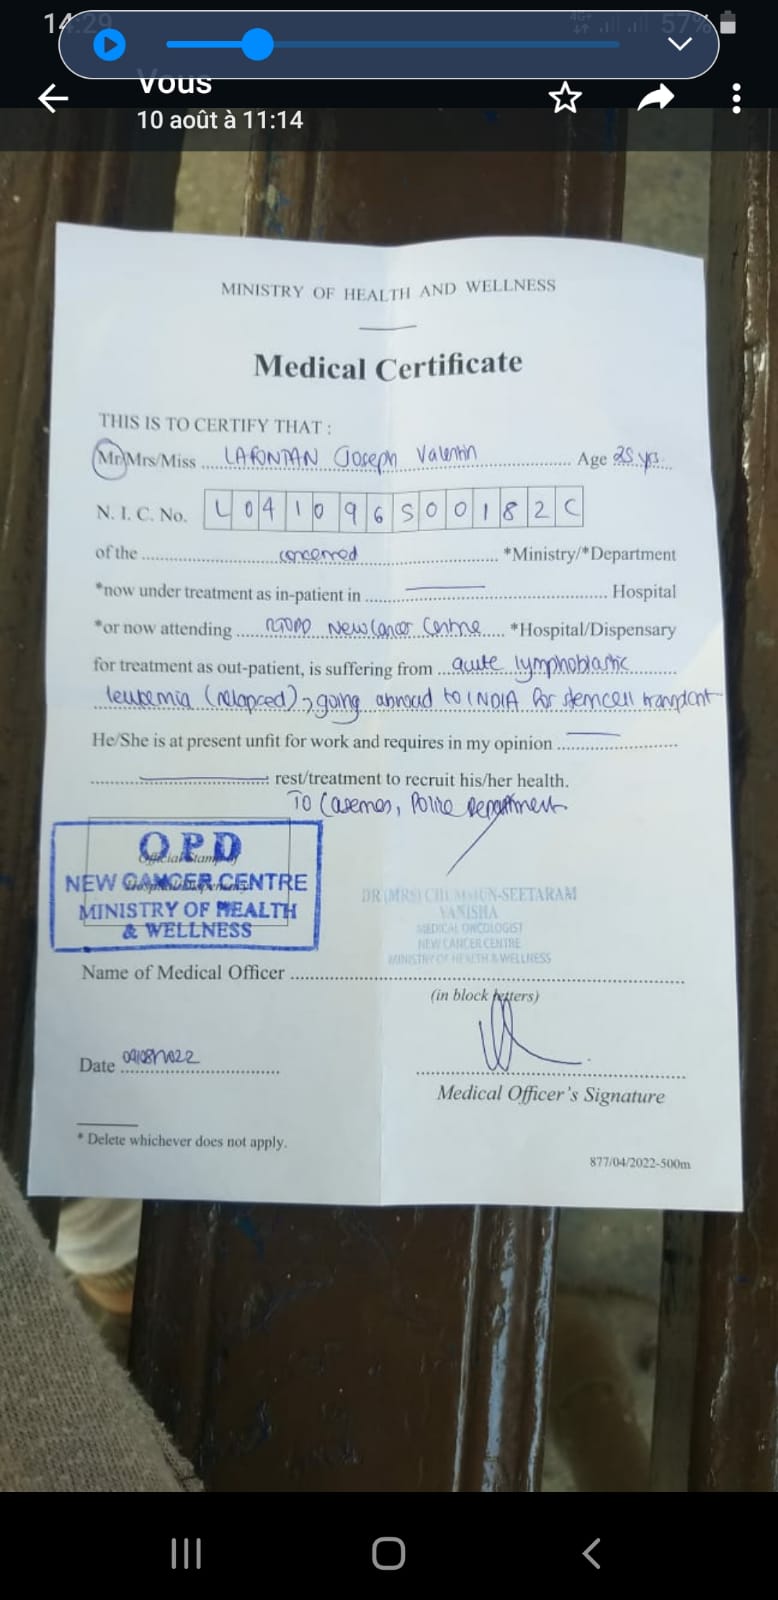 14:29
57%
Vous
10 août à 11:14
MINISTRY OF HEALTH AND WELLNESS
Medical Certificate
THIS IS TO CERTIFY THAT :
Mr/Mrs/Miss LAFONTAN Joseph Valentin Age 25 yrs
N. I. C. No. L 0 4 1 0 9 6 S 0 0 1 8 2 C
of the concerned *Ministry/*Department
*now under treatment as in-patient in Hospital
*or now attending New Cancer Centre *Hospital/Dispensary
for treatment as out-patient, is suffering from acute lymphoblastic
leukemia (relapced) going abroad to INDIA for stemcell transplant
He/She is at present unfit for work and requires in my opinion
rest/treatment to recruit his/her health.
To Casernes, Police Department
OPD
Official Stamp of
NEW CANCER CENTRE
Hospital/Dispensary
MINISTRY OF HEALTH
& WELLNESS
DR (MRS) SEETARAM
VANISHA
MEDICAL ONCOLOGIST
NEW CANCER CENTRE
MINISTRY OF HEALTH & WELLNESS
Name of Medical Officer
(in block letters)
Date 09/08/2022
Medical Officer's Signature
* Delete whichever does not apply.
877/04/2022-500m